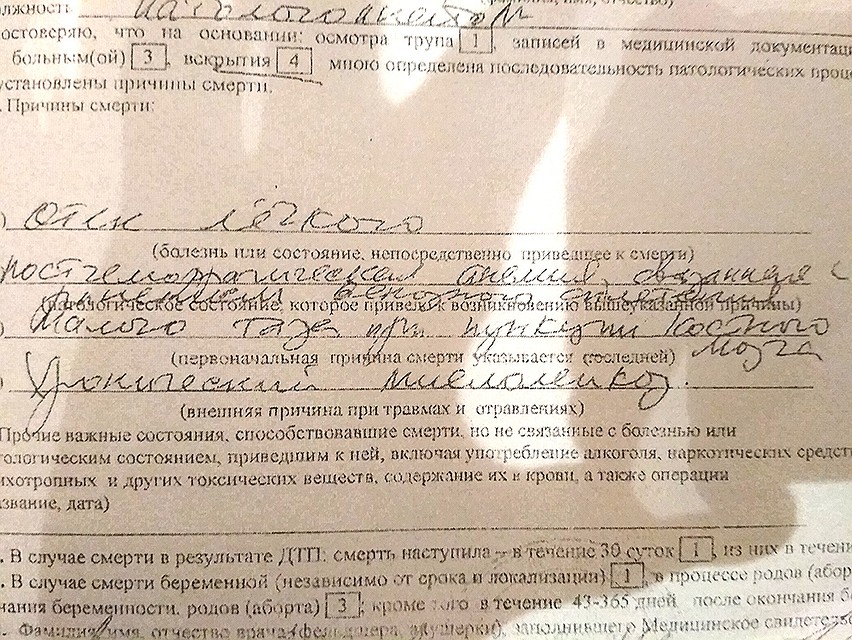 должность патологоанатом
достоверяю, что на основании: осмотра трупа 1, записей в медицинской документаци
больным(ой) 3, вскрытия 4 мною определена последовательность патологических проце
установлены причины смерти.
. Причины смерти:
) Отек лёгкого
(болезнь или состояние, непосредственно приведшее к смерти)
постгеморрагическая анемия, связанная с
ранением венозного сплетения
(патологическое состояние, которое привело к возникновению вышеуказанной причины)
) малого таза при пункции костного
(первоначальная причина смерти указывается последней) мозга
) Хронический миелолейкоз.
(внешняя причина при травмах и отравлениях)
Прочие важные состояния, способствовавшие смерти, но не связанные с болезнью или
тологическим состоянием, приведшим к ней, включая употребление алкоголя, наркотических средств
ихотропных и других токсических веществ, содержание их в крови, а также операции
азвание, дата)
. В случае смерти в результате ДТП: смерть наступила – в течение 30 суток 1, из них в течени
. В случае смерти беременной (независимо от срока и локализации) 1, в процессе родов (абор
чания беременности, родов (аборта) 3; кроме того в течение 43-365 дней после окончания бе
. Фамилия, имя, отчество врача (фельдшера, акушерки), заполнившего Медицинское свидетельс